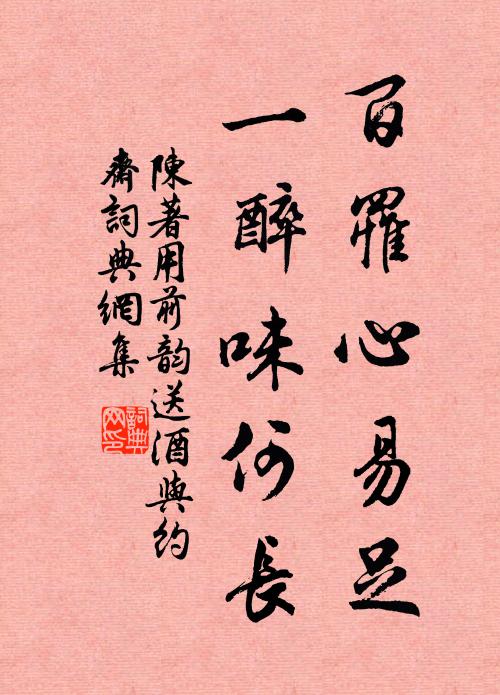 百罹心易足
一醉味何長
陳著用前韵送酒與約
齋詞典網集
詞典網印